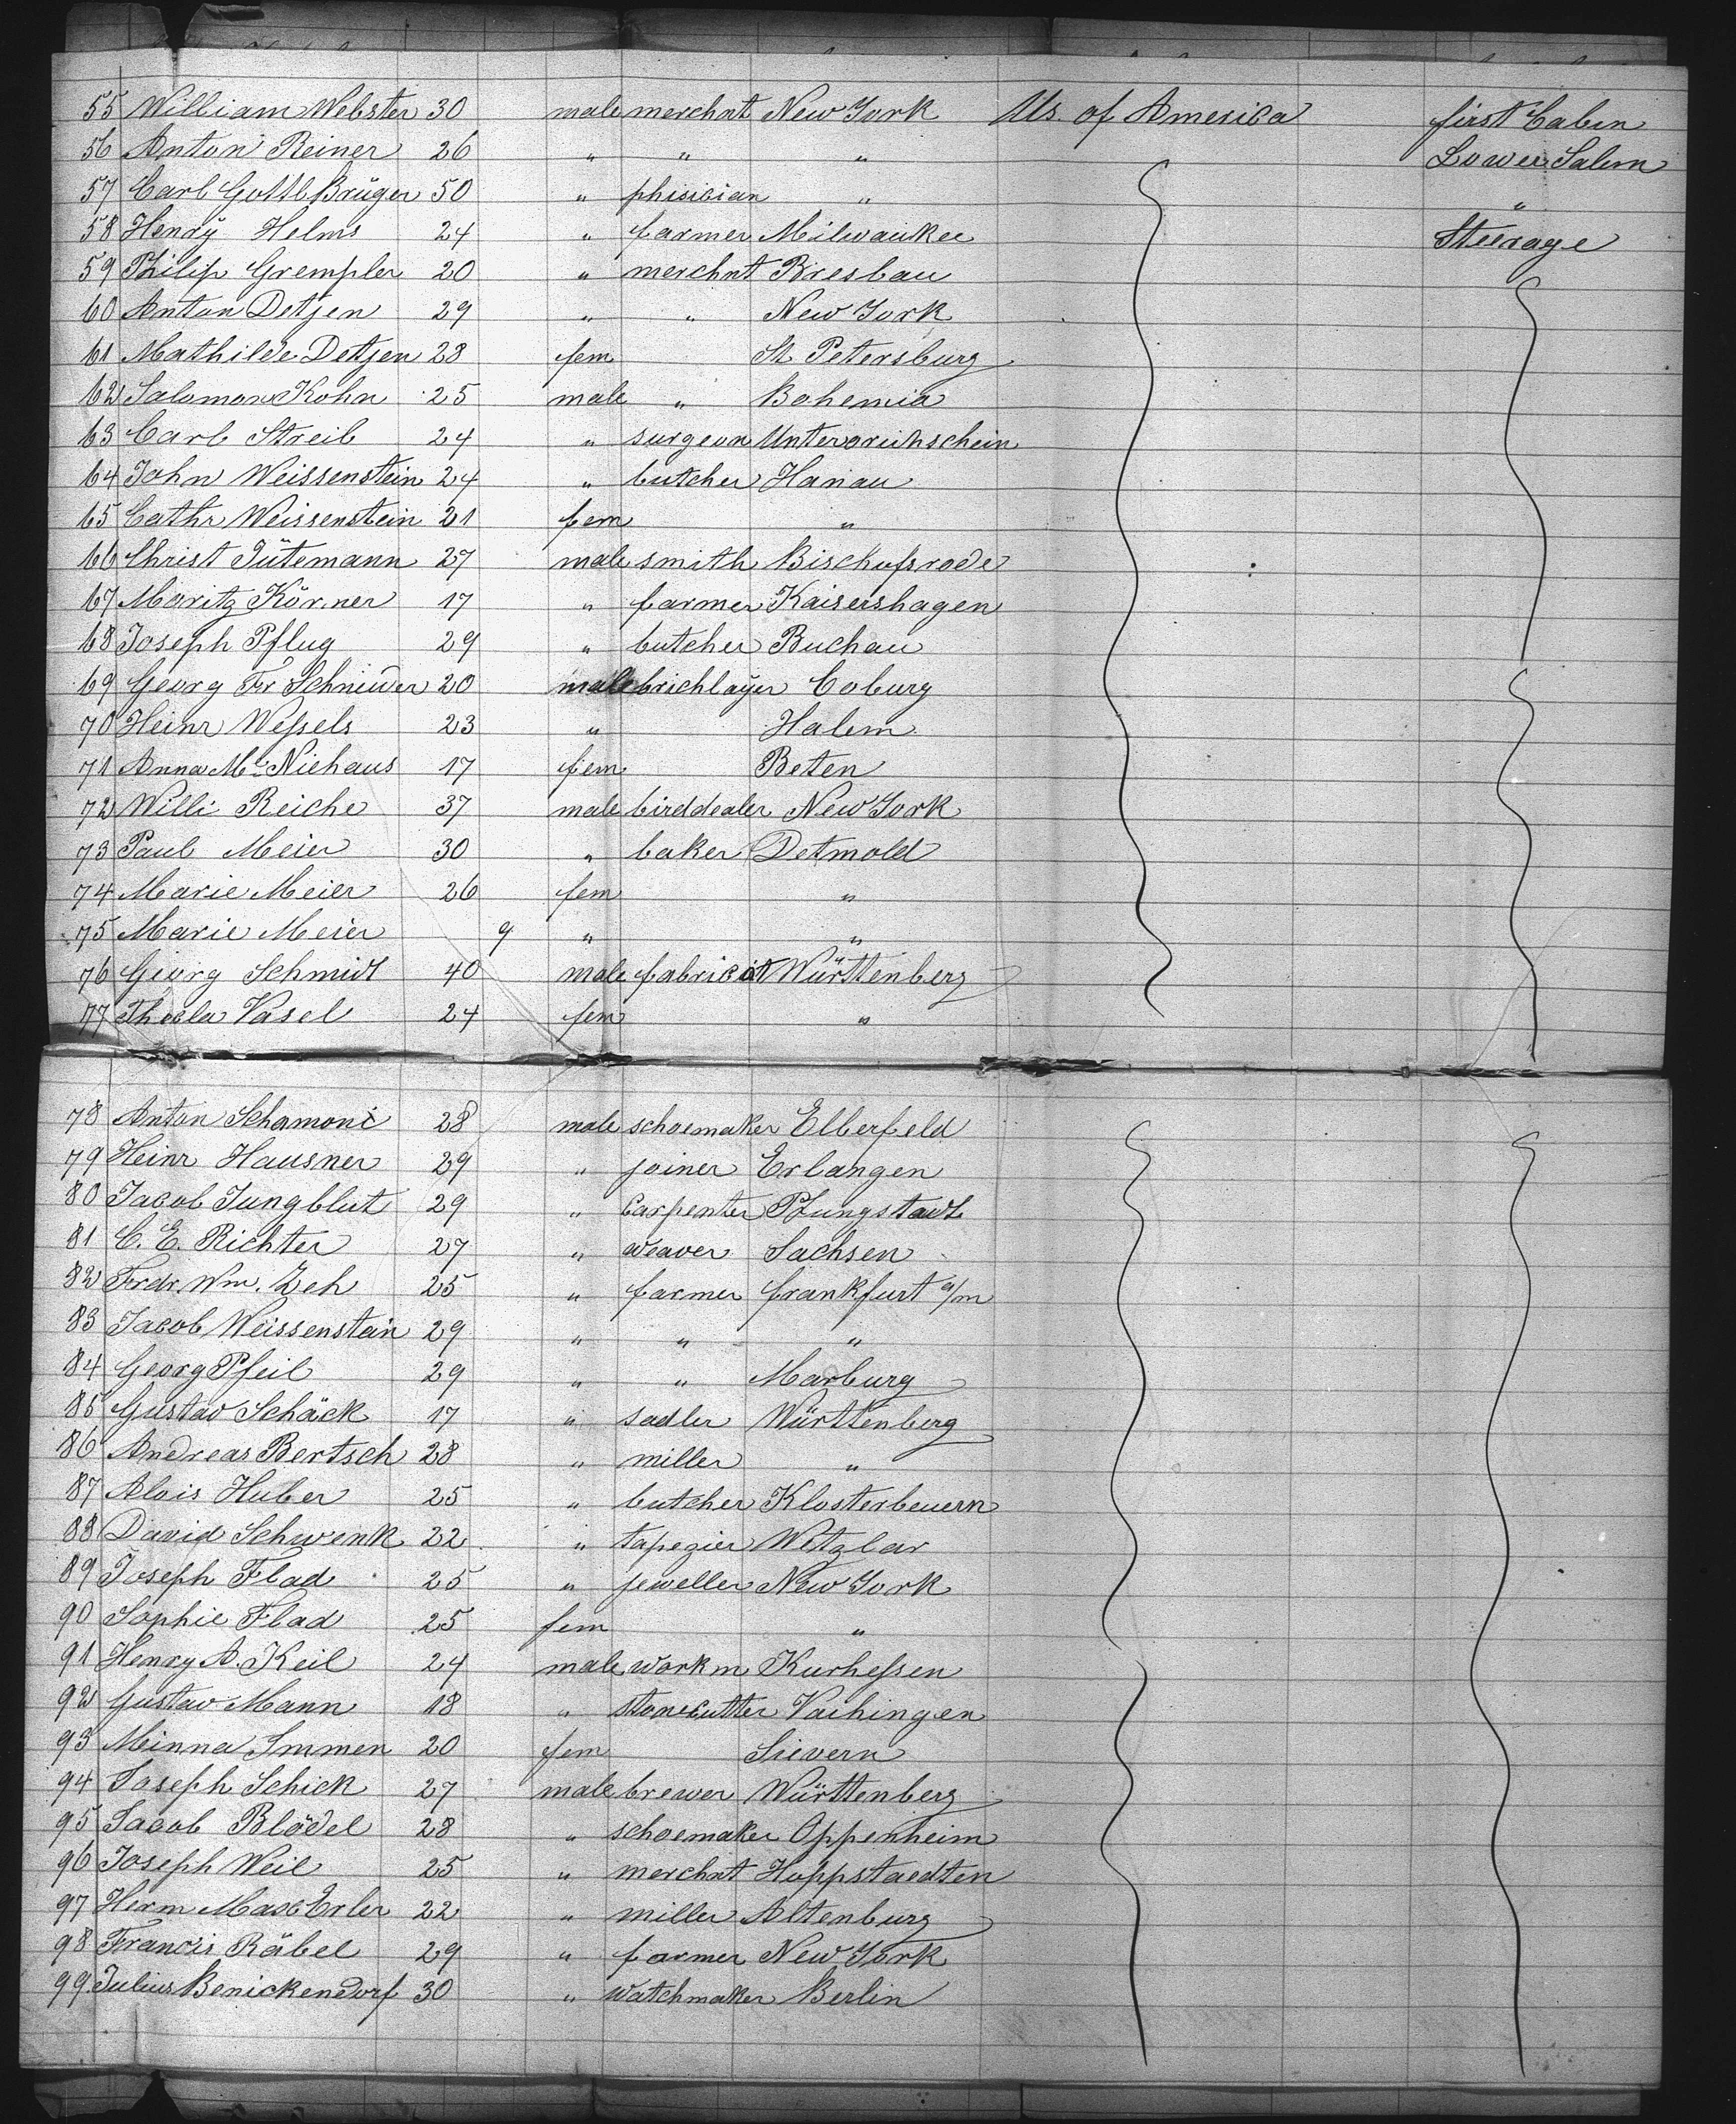 55 William Webster 30 male merchnt New York Us. of America first Cabin
56 Anton Reiner 26 " " " Lower Salem
57 Carl Gottl Krüger 50 " phisician " "
58 Henry Helms 24 " farmer Milwaukee Steerage
59 Philip Grempler 20 " merchnt Breslau
60 Anton Detjen 29 " " New York
61 Mathilde Detjen 28 fem St Petersburg
62 Salomon Kohn 25 male " Bohemia
63 Carl Streib 24 " surgeon
64 John Weissenstein 24 " butcher Hanau
65 Cathr Weissenstein 21 fem "
66 Christ Jütemann 27 male smith Bischofsrode
67 Moritz Körner 17 " farmer Kaisershagen
68 Joseph Pflug 29 " butcher Buchau
69 Georg Fr Schnieder 20 male bricklayer Coburg
70 Heinr Weſsels 23 " Halem
71 Anna Me Niehaus 17 fem Beten
72 Willi Reiche 37 male birddealer New York
73 Paul Meier 30 " baker Detmold
74 Marie Meier 26 fem "
75 Marie Meier 9 " "
76 Georg Schmidt 40 male fabricat Württenberg
77 Thecla Vasel 24 fem "
78 Anton Schamoni 28 male schoemaker Elberfeld
79 Heinr Hausner 29 " joiner Erlangen
80 Jacob Jungblut 29 " Carpenter Pfungstadt
81 C. E. Richter 27 " weaver Sachsen
82 Frdr. Wm. Zeh 25 " farmer frankfurt a/m
83 Jacob Weissenstein 29 " " "
84 Georg Pfeil 29 " " Marburg
85 Gustav Schäck 17 " sadler Württenberg
86 Andreas Bertsch 28 " miller "
87 Alois Huber 25 " butcher Klosterbeuern
88 David Schwenk 22 " tapezier Wetzlar
89 Joseph Flad 25 " jeweller New York
90 Sophie Flad 25 fem "
91 Henry A. Keil 24 male workm Kurheſsen
92 Gustav Mann 18 " stonecutter Vaihingen
93 Minna Immen 20 fem Sievern
94 Joseph Schick 27 male brewer Württenberg
95 Jacob Blödel 28 " schoemaker Oppenheim
96 Joseph Weil 25 " merchnt Hoppstaedten
97 Herm Max Erler 22 " miller Altenburg
98 Francis Räbel 29 " farmer New York
99 Julius Benickendorf 30 " watchmaker Berlin